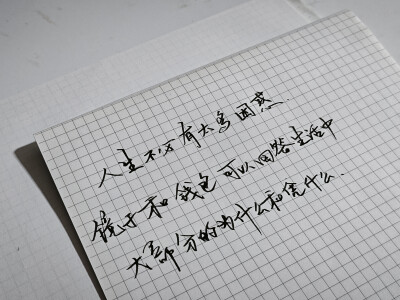 人生不必有太多困惑.
镜子和钱包可以回答生活中
大部分的为什么和凭什么.